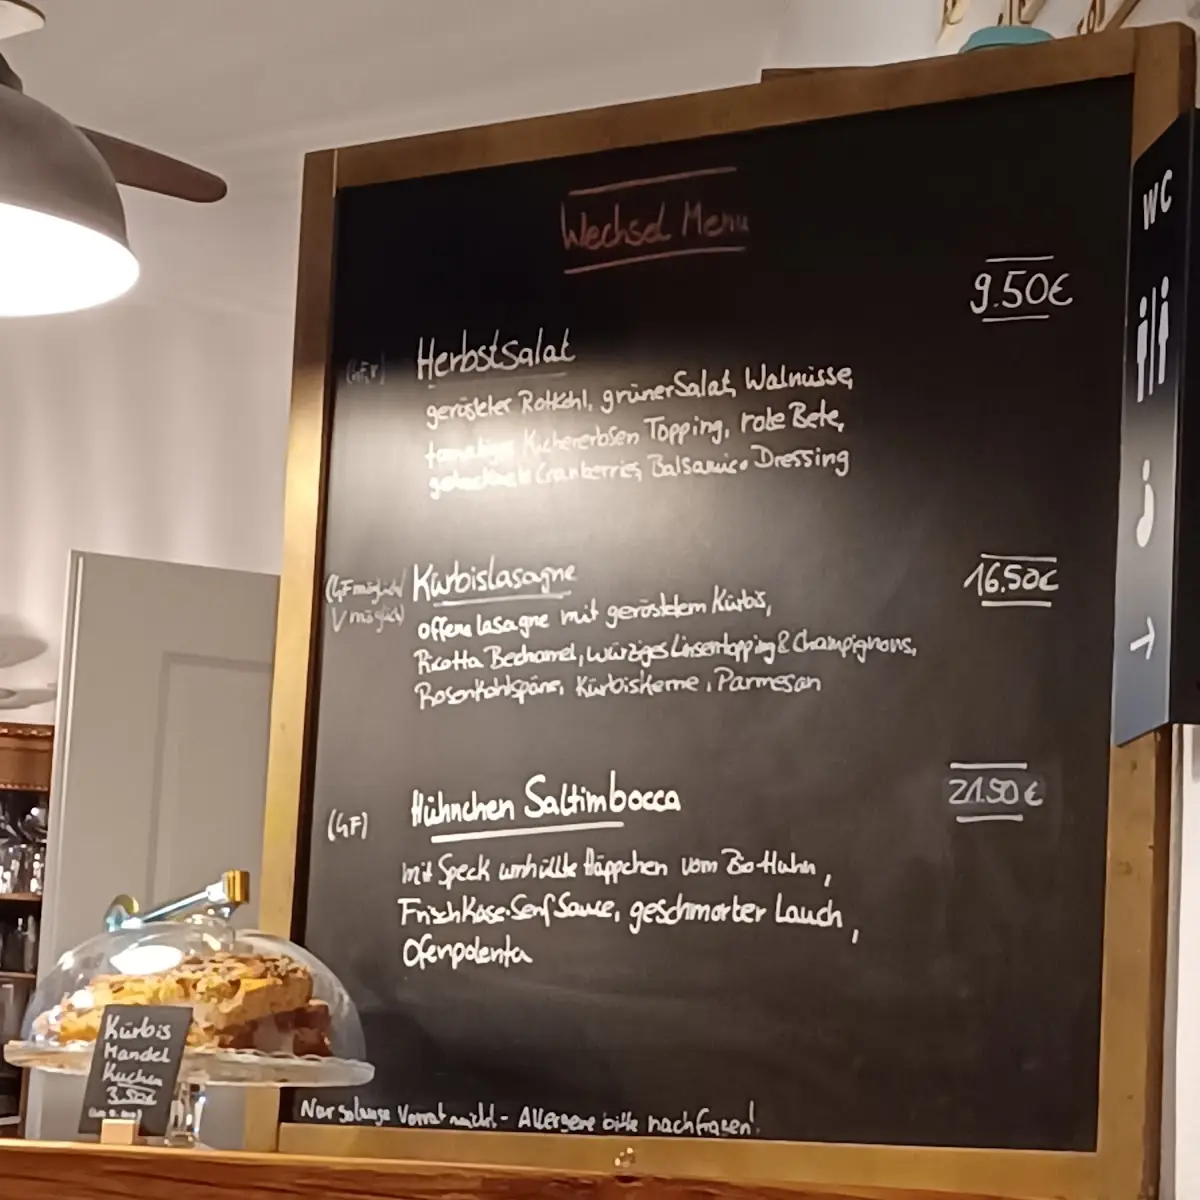 Wechsel Menu
9.50€
(GF,V) Herbstsalat
gerösteter Rotkohl, grüner Salat, Walnüsse,
Kichererbsen Topping, rote Bete,
Cranberries, Balsamico Dressing
(GF möglich/ Kürbislasagne 16,50€
V möglich)
offene lasagne mit geröstetem Kürbis,
Ricotta Bechamel, würziges Linsentopping & Champignons,
Rosenkohlspäne, Kürbiskerne, Parmesan
(GF) Hühnchen Saltimbocca 21.50€
mit Speck umhüllte Häppchen vom Bio-Huhn,
Frischkäse-Senf Sauce, geschmorter Lauch,
Ofenpolenta
Nur solange Vorrat reicht - Allergene bitte nachfragen!
WC
Kürbis
Mandel
Kuchen
3,50€